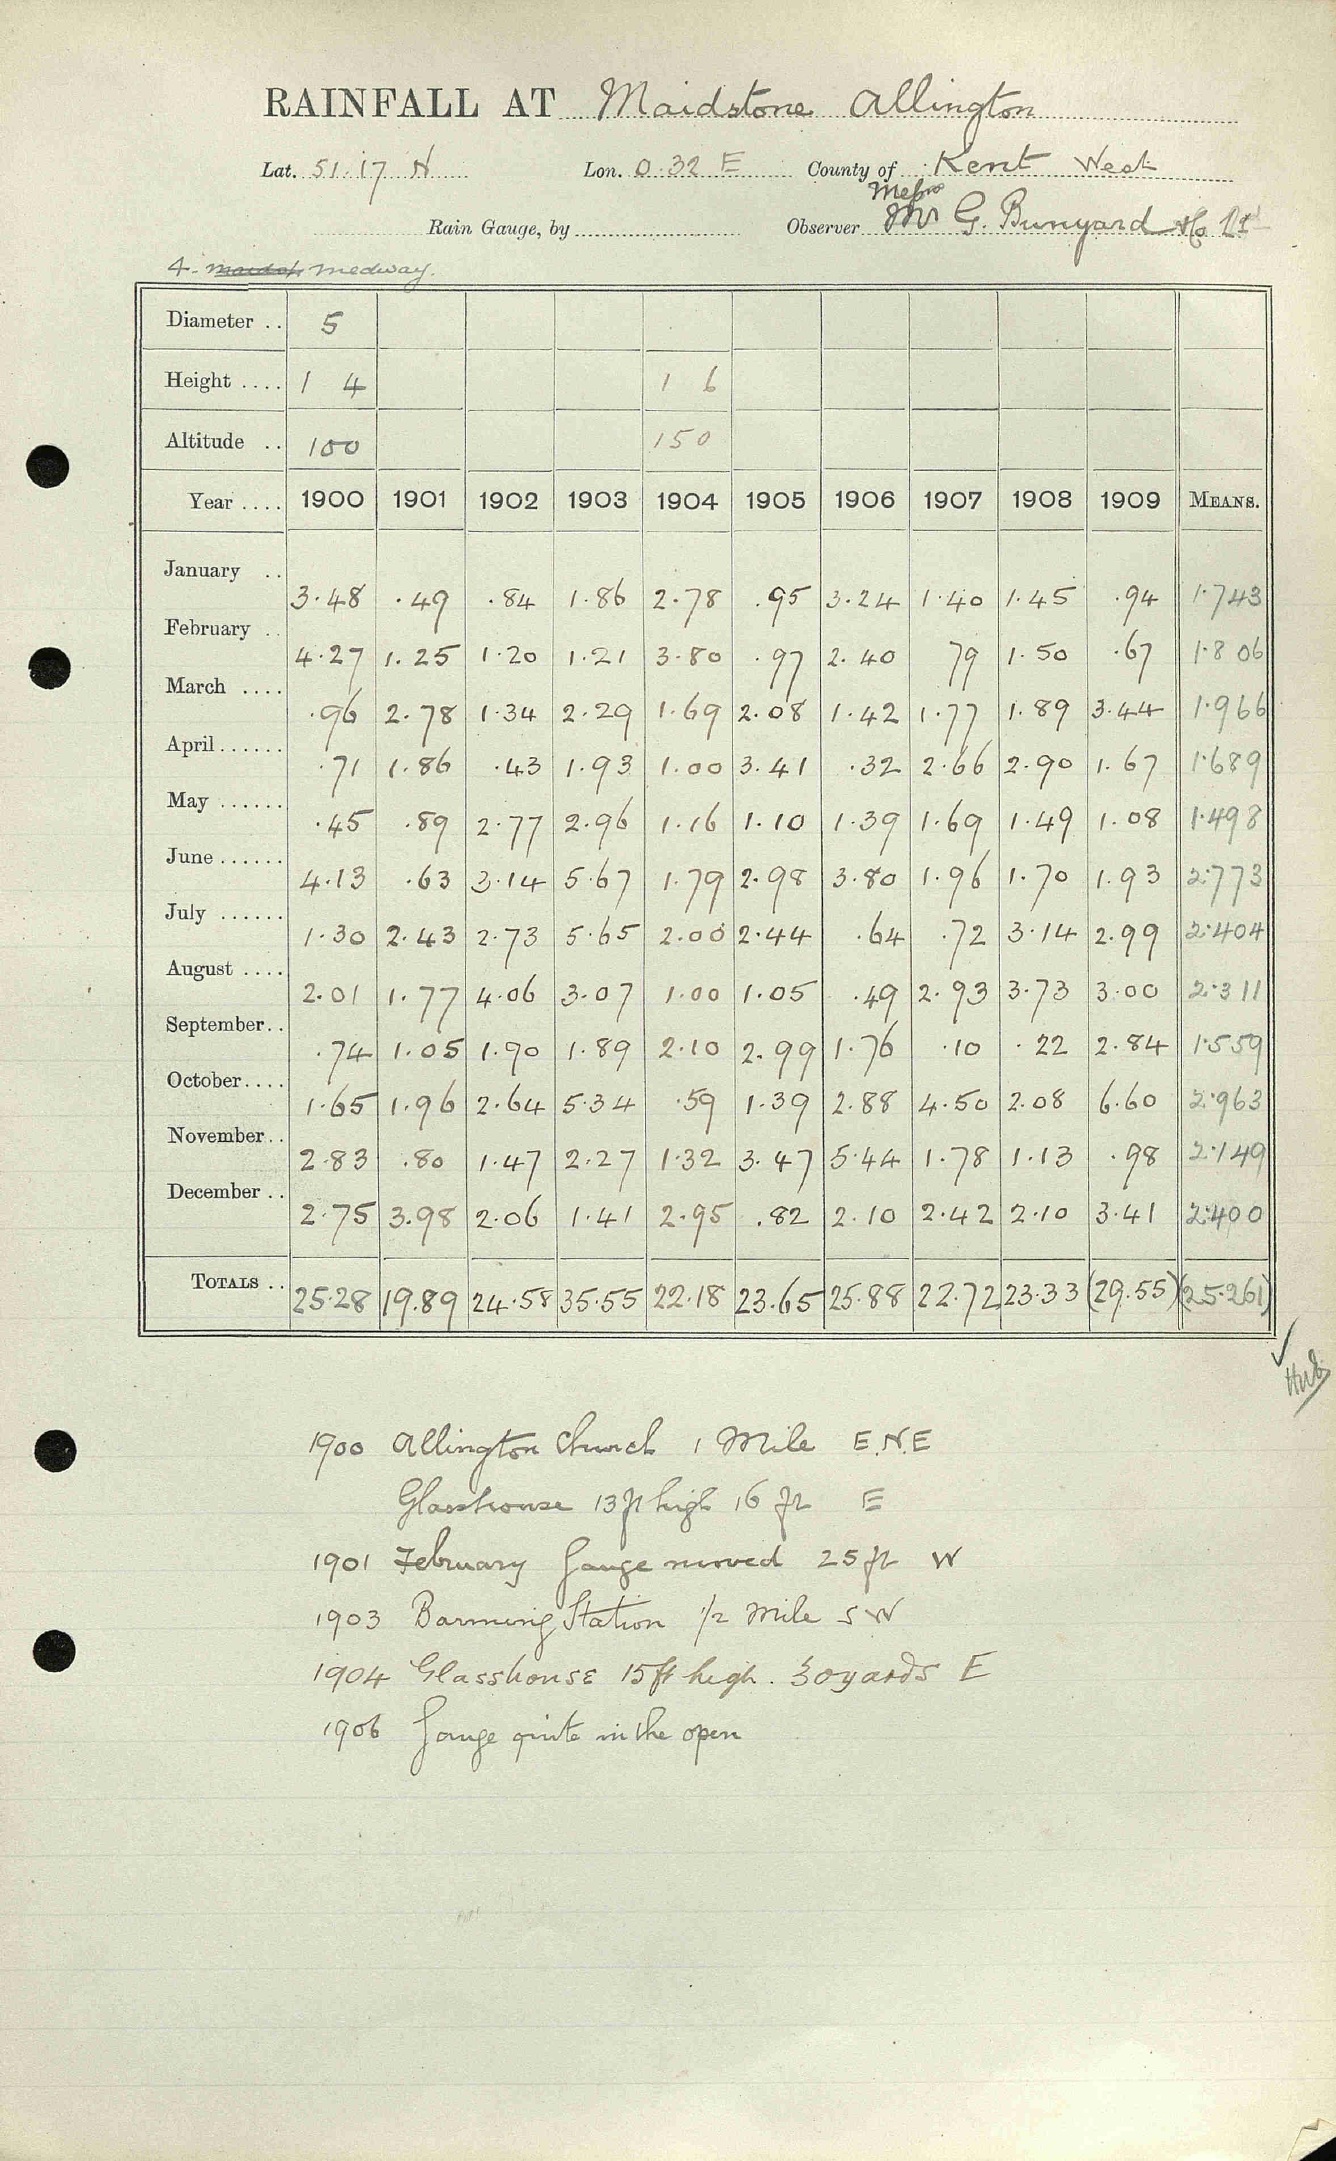 RAINFALL AT Maidstone Allington
Lat. 51.17 N Lon. 0.32 E County of Kent West
Messrs
Rain Gauge, by Observer Mr G. Bunyard & Co Ld
4. Medway.
Diameter .. 5
Height .... 1 4 1 6
Altitude .. 100 150
Year .... 1900 1901 1902 1903 1904 1905 1906 1907 1908 1909 MEANS.
January .. 3.48 .49 .84 1.86 2.78 .95 3.24 1.40 1.45 .94 1.743
February .. 4.27 1.25 1.20 1.21 3.80 .97 2.40 79 1.50 .67 1.806
March .... .96 2.78 1.34 2.29 1.69 2.08 1.42 1.77 1.89 3.44 1.966
April ...... .71 1.86 .43 1.93 1.00 3.41 .32 2.66 2.90 1.67 1.689
May ...... .45 .89 2.77 2.96 1.16 1.10 1.39 1.69 1.49 1.08 1.498
June ...... 4.13 .63 3.14 5.67 1.79 2.98 3.80 1.96 1.70 1.93 2.773
July ...... 1.30 2.43 2.73 5.65 2.00 2.44 .64 .72 3.14 2.99 2.404
August .... 2.01 1.77 4.06 3.07 1.00 1.05 .49 2.93 3.73 3.00 2.311
September.. .74 1.05 1.90 1.89 2.10 2.99 1.76 .10 .22 2.84 1.559
October.... 1.65 1.96 2.64 5.34 .59 1.39 2.88 4.50 2.08 6.60 2.963
November.. 2.83 .80 1.47 2.27 1.32 3.47 5.44 1.78 1.13 .98 2.149
December .. 2.75 3.98 2.06 1.41 2.95 .82 2.10 2.42 2.10 3.41 2.400
TOTALS .. 25.28 19.89 24.58 35.55 22.18 23.65 25.88 22.72 23.33 (29.55) (25.261)
1900 Allington Church 1 Mile E.N.E
Glasshouse 13ft high 16 ft E
1901 February Gauge moved 25 ft W
1903 Barming Station 1/2 mile SW
1904 Glasshouse 15ft high. 30yards E
1906 Gauge quite in the open